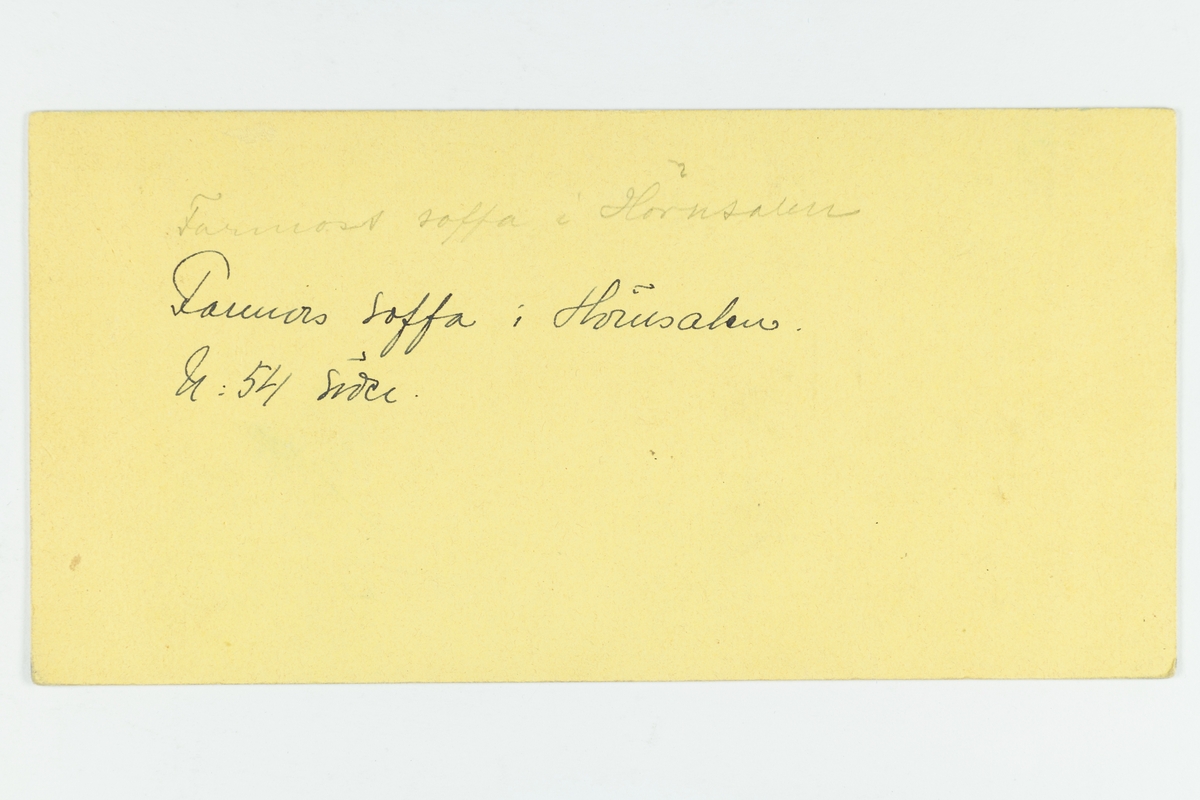 Farmors soffa i Hörnsalen
Farmors soffa i Hörnsalen.
N: 54